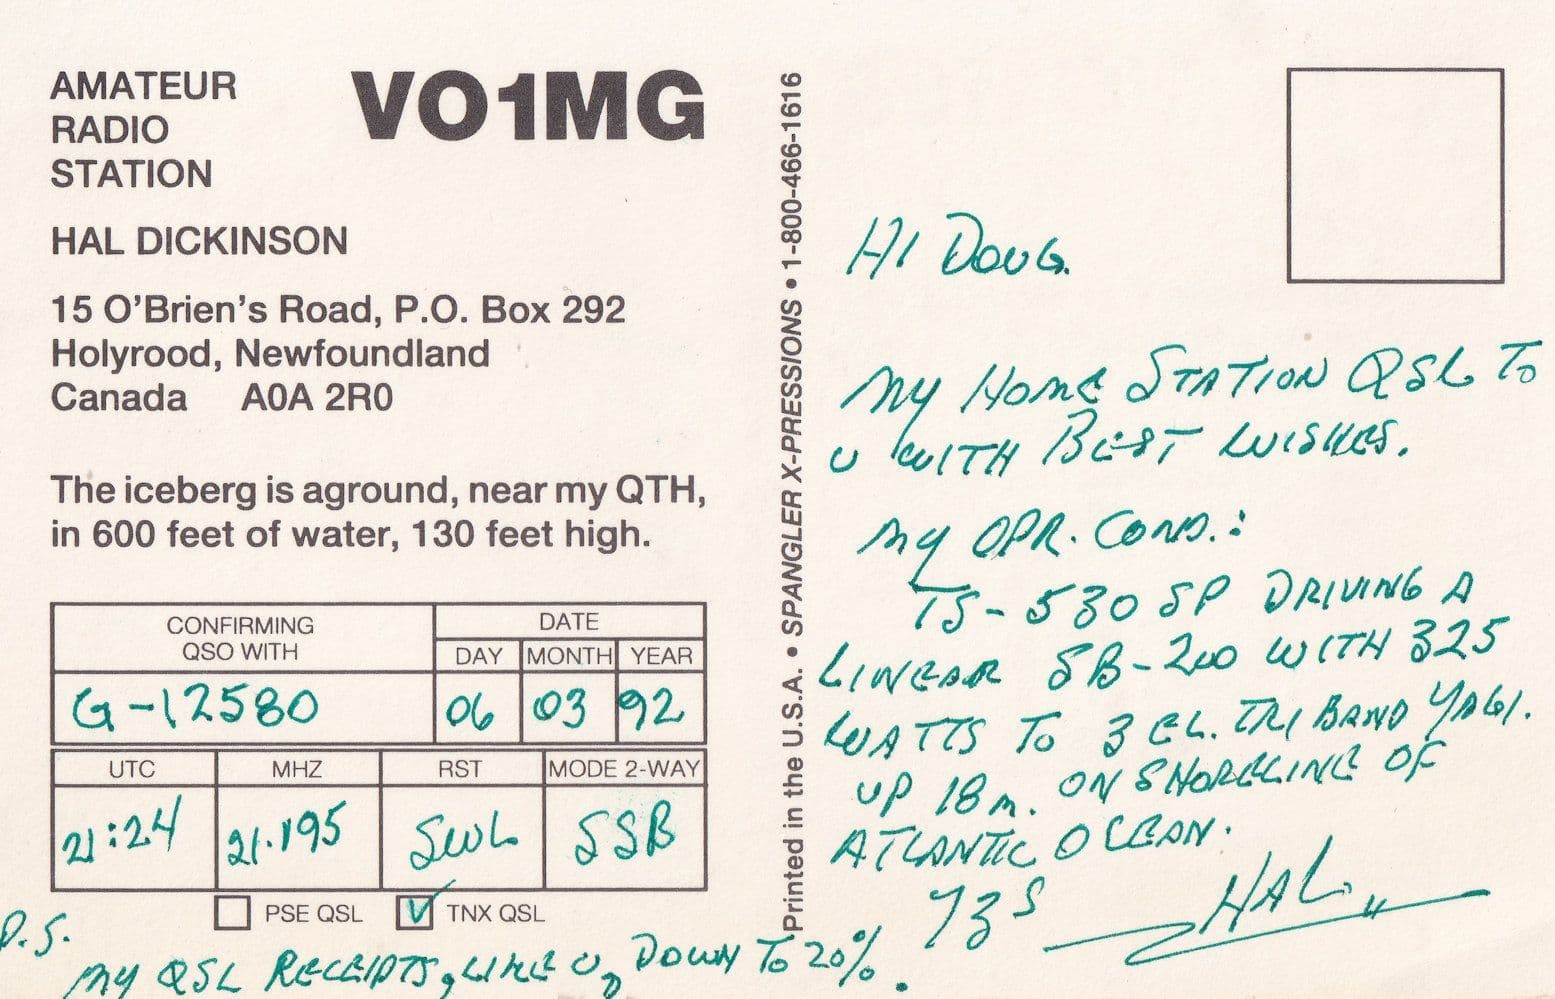 AMATEUR
RADIO
STATION
VO1MG
HAL DICKINSON
15 O'Brien's Road, P.O. Box 292
Holyrood, Newfoundland
Canada A0A 2R0
The iceberg is aground, near my QTH,
in 600 feet of water, 130 feet high.
CONFIRMING
QSO WITH
DATE
DAY MONTH YEAR
G-12580 06 03 92
UTC MHZ RST MODE 2-WAY
21:24 21.195 SWL SSB
PSE QSL TNX QSL
P.S.
MY QSL RECEIPTS, LIKE U, DOWN TO 20%.
Printed in the U.S.A. • SPANGLER X-PRESSIONS • 1-800-466-1616
HI DOUG.
MY HOME STATION QSL TO
U WITH BEST WISHES.
MY OPR. COND.:
TS-530 SP DRIVING A
LINEAR SB-200 WITH 325
WATTS TO 3 EL. TRI BAND YAGI.
UP 18m. ON SHORELINE OF
ATLANTIC OCEAN.
73S
HAL